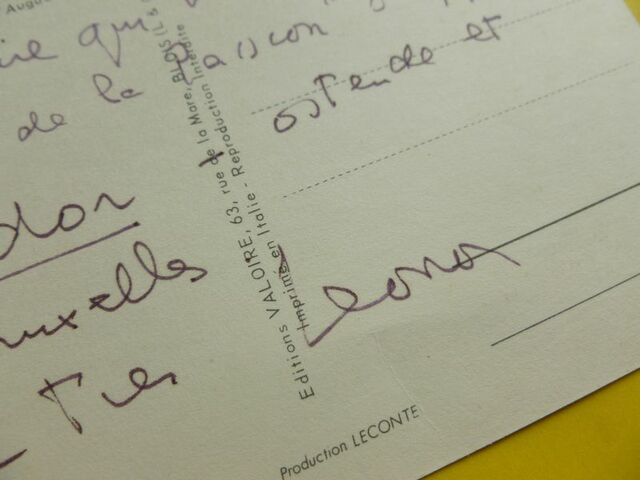 Augus
qui
de la passion
ostende et
uxelles
Editions VALOIRE, 63, rue de la Mare, BLOIS (L. &
Imprimé en Italie - Reproduction Interdite
Leonor
Production LECONTE